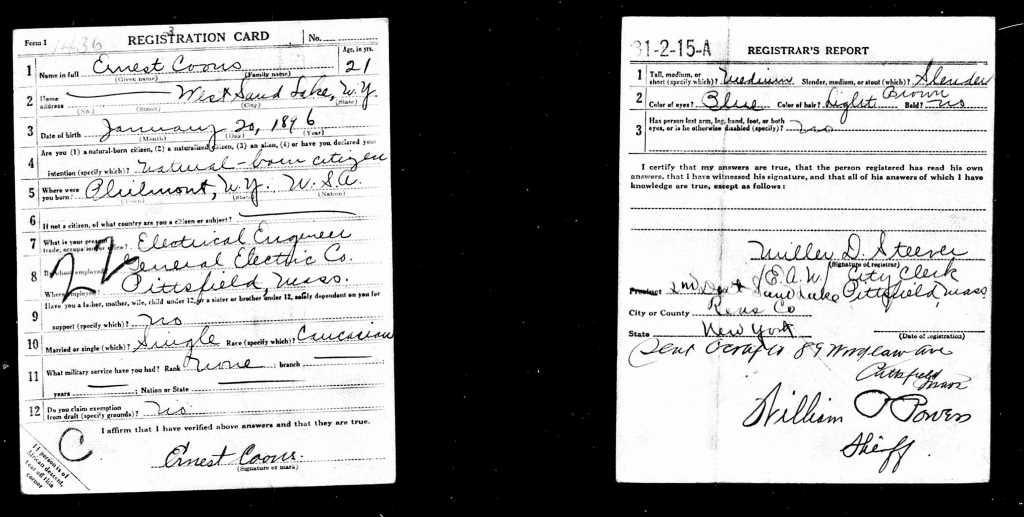 Form 1 1436 REGISTRATION CARD No.
3
1 Name in full Ernest Coons Age, in yrs. 21
(Given name) (Family name)
2 Home address West Sand Lake, N.Y.
(No.) (Street) (City) (State)
3 Date of birth January 20, 1896
(Month) (Day) (Year)
4 Are you (1) a natural-born citizen, (2) a naturalized citizen, (3) an alien, (4) or have you declared your
intention (specify which)? Natural-born citizen
5 Where were you born? Philmont, N.Y. U.S.A.
(Town) (State) (Nation)
6 If not a citizen, of what country are you a citizen or subject?
7 What is your present trade, occupation, or office? Electrical Engineer
8 By whom employed? General Electric Co.
Where employed? Pittsfield, Mass.
22
9 Have you a father, mother, wife, child under 12, or a sister or brother under 12, solely dependent on you for
support (specify which)? No
10 Married or single (which)? Single Race (specify which)? Caucasian
11 What military service have you had? Rank None ; branch
years ; Nation or State
12 Do you claim exemption from draft (specify grounds)? No
I affirm that I have verified above answers and that they are true.
C
Ernest Coons.
(Signature or mark)
If person is of
African descent,
tear off this
corner
31-2-15-A REGISTRAR'S REPORT
1 Tall, medium, or short (specify which)? Medium Slender, medium, or stout (which)? Slender
2 Color of eyes? Blue Color of hair? Light Brown Bald? No
3 Has person lost arm, leg, hand, foot, or both eyes, or is he otherwise disabled (specify)? No
I certify that my answers are true, that the person registered has read his own
answers, that I have witnessed his signature, and that all of his answers of which I have
knowledge are true, except as follows:
Miller D. Steever
(Signature of registrar)
E.A.W. City Clerk
Precinct 2nd Dist Sand Lake Pittsfield, Mass.
City or County Rens Co
State New York (Date of registration)
Sent 89 Ave
Pittsfield
Mass
William O Powers
Sheriff